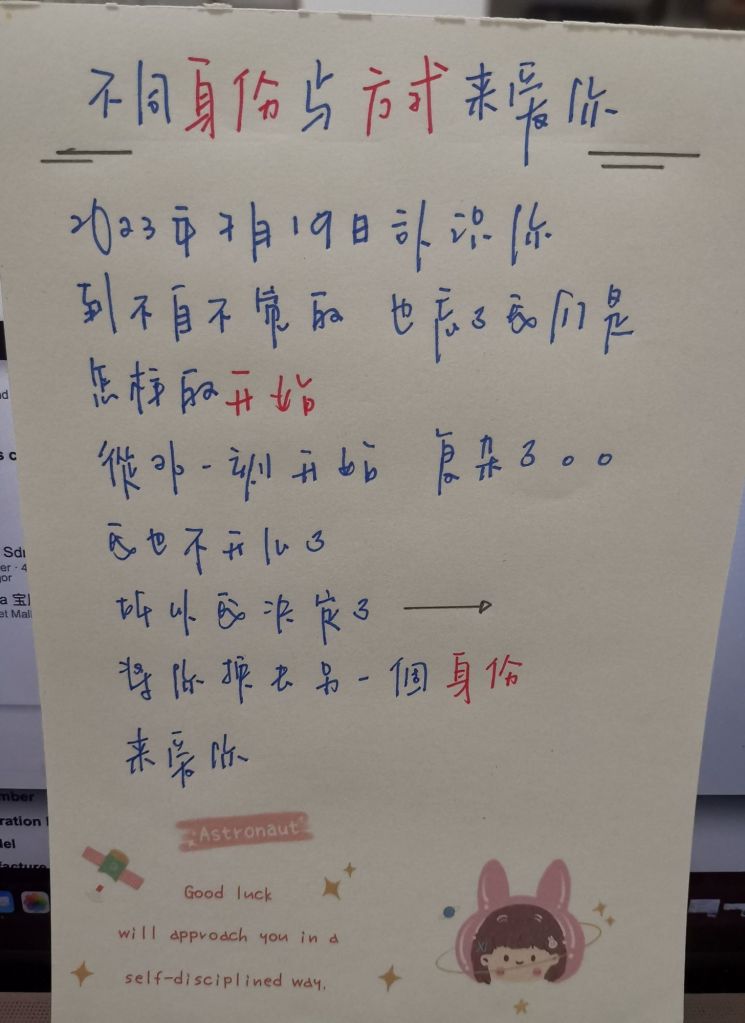 不同身份与方式来爱你
2023年7月19日认识你
到不自不觉的 也忘了我们是
怎样的开始
從那一刻开始 复杂了。。
我也不开心了
所以我决定了 →
将你换去另一個身份
来爱你
Astronaut
Good luck
will approach you in a
self-disciplined way.